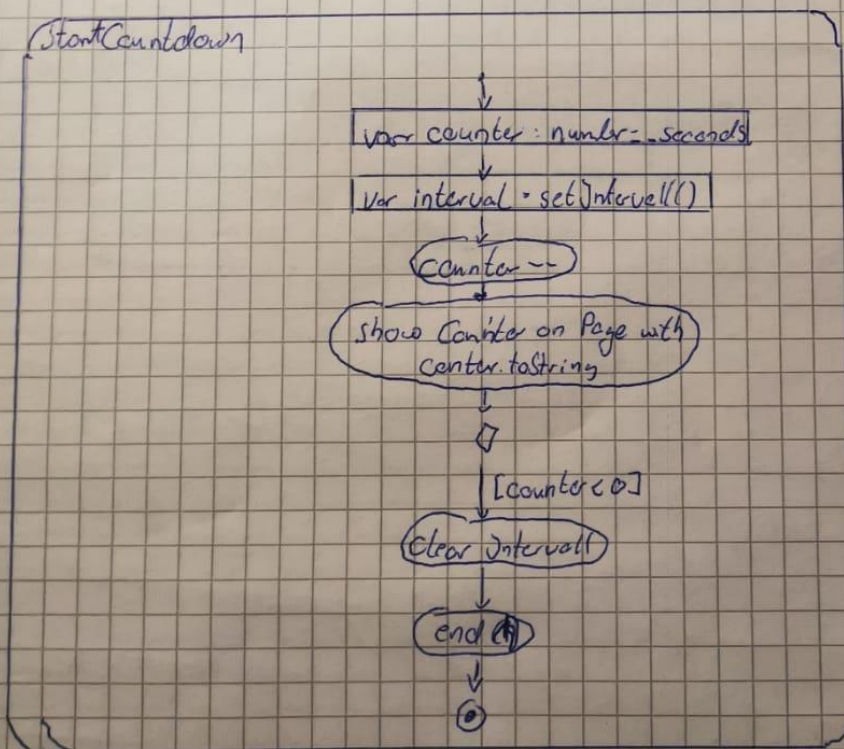 StartCountdown
var counter : number = _seconds
var interval = setIntervall()
counter --
show Counter on Page with
counter.toString
[counter < 0]
Clear Intervall
end